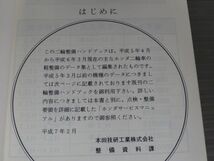 はじめに
この二輪整備ハンドブックは、平成5年4月
から平成6年3月現在の主たるホンダ二輪車の
整備用のデータ集として編集されたものです。
平成5年3月以前の機種のデータにつきまし
ては次ページに記載されておりますので、二輪
整備ハンドブックを御利用ください。詳しい
内容につきましては本書と別に、点検・整備
要領を詳細に説明した「ホンダサービスマニュ
アル」がありますので御参照ください。
平成7年2月
本田技研工業株式会社
整備資料課